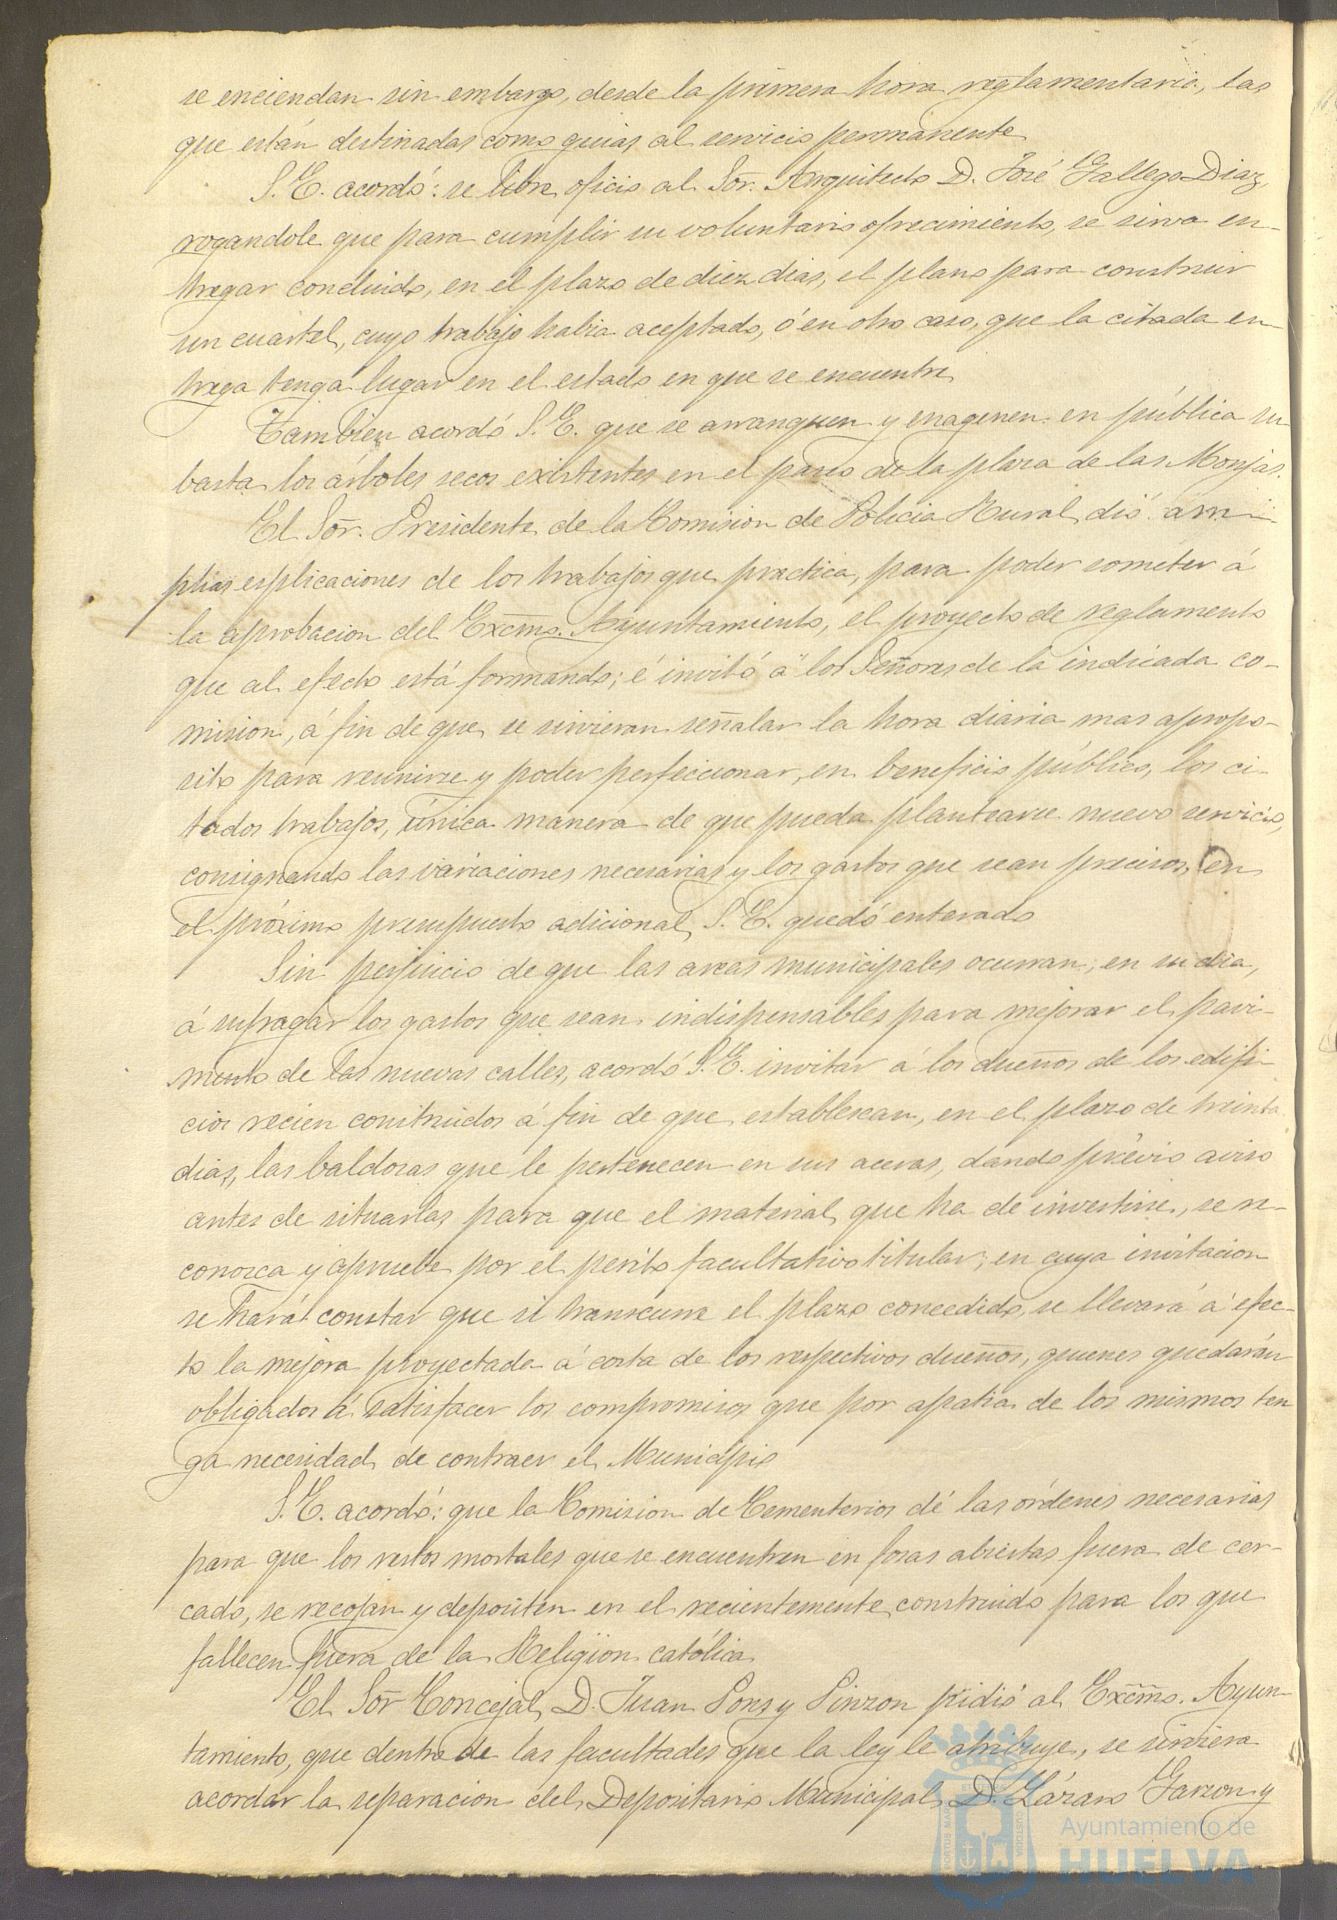 se enciendan sin embargo, desde la primera hora reglamentaria, las
que están destinadas como guias al servicio permanente
S. E. acordó: se libre oficio al Sor. Arquitecto D. José Gallego Diaz,
rogandole que para cumplir su voluntario ofrecimiento, se sirva en-
tregar concluido, en el plazo de diez dias, el plano para construir
un cuartel, cuyo trabajo habia aceptado, ó en otro caso, que la citada en-
trega tenga lugar en el estado en que se encuentre
Tambien acordó S. E. que se arranquen y enagenen en pública su-
basta los árboles secos existentes en el paseo de la plaza de las Monjas.
El Sor. Presidente de la Comision de Policia Rural dió am-
plias esplicaciones de los trabajos que practica, para poder someter á
la aprobacion del Excmo. Ayuntamiento, el proyecto de reglamento
que al efecto está formando; é invitó á los Señores de la indicada co-
mision, á fin de que se sirvieran señalar la hora diaria mas apropo-
sito para reunirse y poder perfeccionar, en beneficio público, los ci-
tados trabajos, única manera de que pueda plantearse nuevo servicio,
consignando las variaciones necesarias y los gastos que sean precisos, en
el próximo presupuesto adicional, S. E. quedó enterado
Sin perjuicio de que las arcas municipales ocurran, en su dia,
á sufragar los gastos que sean indispensables para mejorar el pavi-
mento de las nuevas calles, acordó S. E. invitar á los dueños de los edifi-
cios recien construidos á fin de que establescan, en el plazo de treinta
dias, las baldosas que le pertenecen en sus aceras, dando prévio aviso
antes de situarlas para que el material que ha de invertirse, se re-
conozca y apruebe por el perito facultativo titular; en cuya invitacion
se hará constar que si transcurre el plazo concedido, se llevará á efec-
to la mejora proyectada á costa de los respectivos dueños, quienes quedarán
obligados á satisfacer los compromisos que por apatia de los mismos ten
ga necesidad de contraer el Municipio
S. E. acordó: que la Comision de Cementerios dé las órdenes necesarias
para que los restos mortales que se encuentren en fosas abiertas fuera de cer-
cado, se recojan y depositen en el recientemente construido para los que
fallecen fuera de la Religion católica
El Sor Concejal D. Juan Pons y Pinzon pidió al Excmo. Ayun-
tamiento, que dentro de las facultades que la ley le atribuye, se sirviera
acordar la separacion del Depositario Municipal D. Lázaro Garzon y
Ayuntamiento de
HUELVA